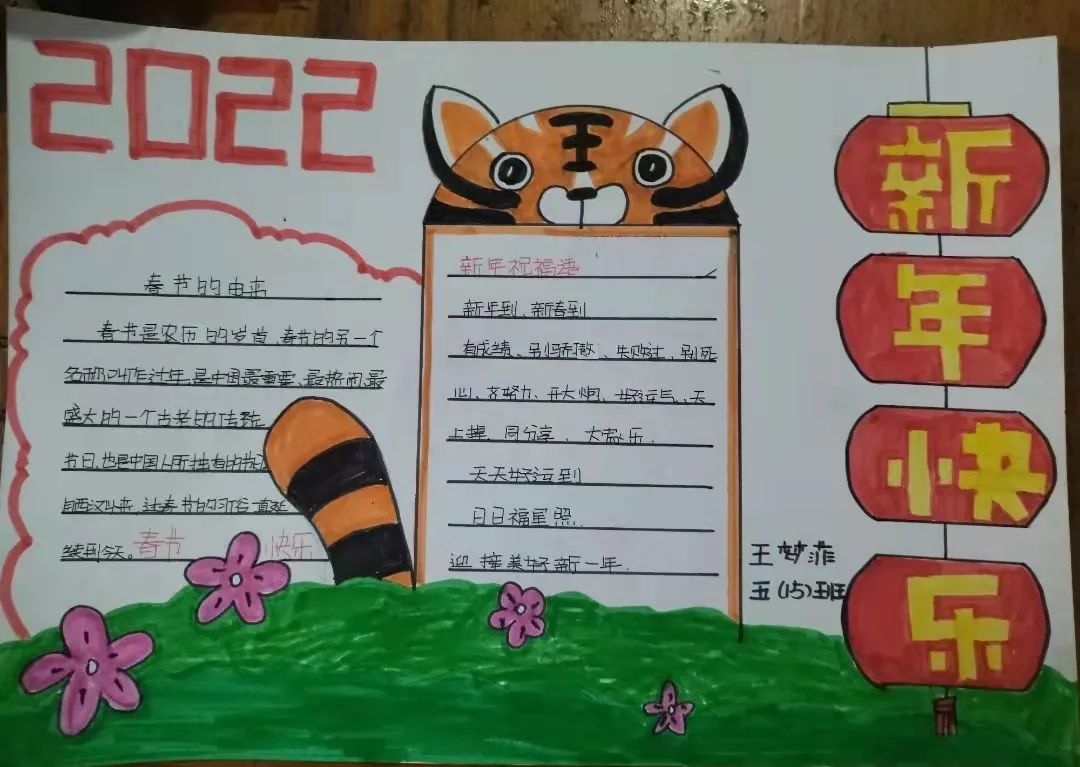 2022
春节的由来
春节是农历的岁首,春节的另一个
名称叫作过年,是中国最重要、最热闹、最
盛大的一个古老的传统
节日,也是中国人所独有的节日
自西汉以来,过春节的习俗一直延
续到今天。春节 快乐
王
新年祝福语
新年到、新春到
有成绩、别骄傲、失败过、别死
心、齐努力、开大炮、好运气、天
上掉、同分享、大家乐.
天天好运到
日日福星照.
迎接美好新一年.
王梦菲
五(15)班
新
年
快
乐